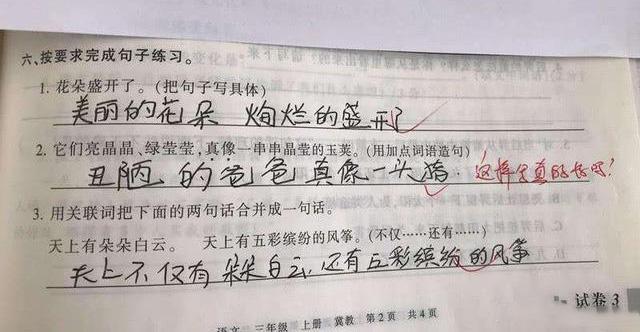 六、按要求完成句子练习。
1. 花朵盛开了。(把句子写具体)
美丽的花朵 绚烂的盛开
2. 它们亮晶晶、绿莹莹,真像一串串晶莹的玉荚。(用加点词语造句)
丑陋的爸爸真像一头猪. 这样写真的好吗?
3. 用关联词把下面的两句话合并成一句话。
天上有朵朵白云。 天上有五彩缤纷的风筝。(不仅……还有……)
天上不仅有朵朵白云 还有五彩缤纷的风筝
试卷 3
语文 三年级 上册 冀教 第2页 共4页